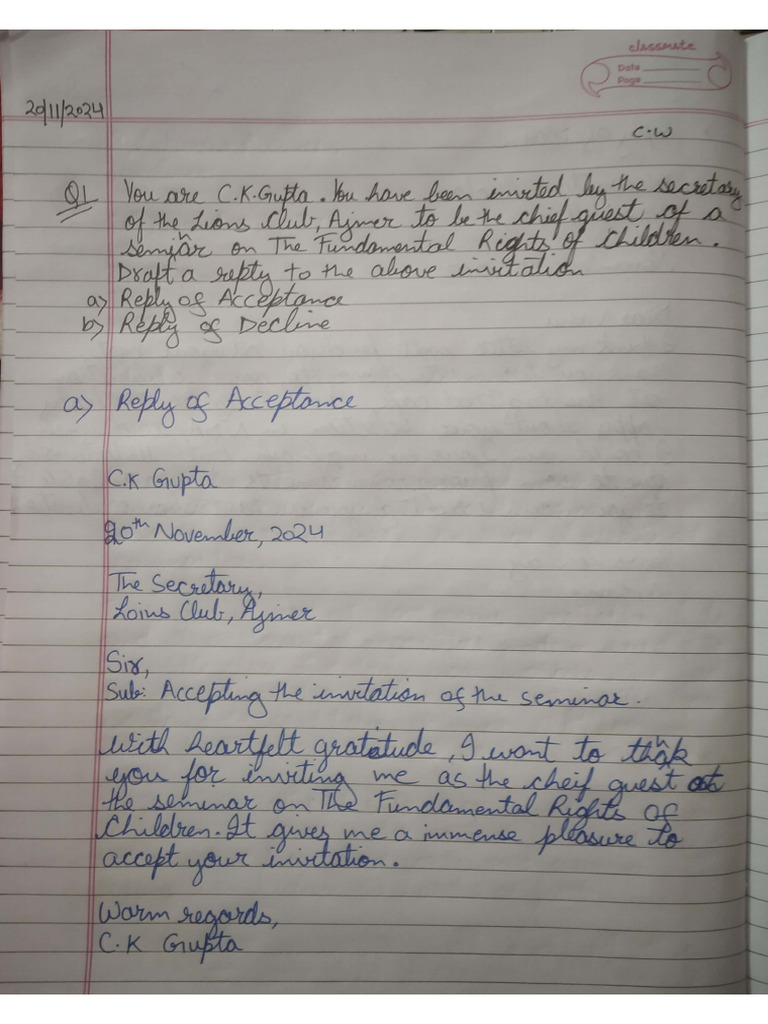 classmate
Date
Page
20/11/2024
C.W
Q1 You are C.K.Gupta. You have been invited by the secretary
of the Lions Club, Ajmer to be the chief guest of a
seminar on The Fundamental Rights of Children.
Draft a reply to the above invitation
a) Reply of Acceptance
b) Reply of Decline
a) Reply of Acceptance
C.K Gupta
20th November, 2024
The Secretary,
Loins Club, Ajmer
Sir,
Sub: Accepting the invitation of the seminar.
With heartfelt gratitude, I want to thank
you for inviting me as the cheif guest at
the seminar on The Fundamental Rights of
Children. It gives me a immense pleasure to
accept your invitation.
Warm regards,
C.K Gupta